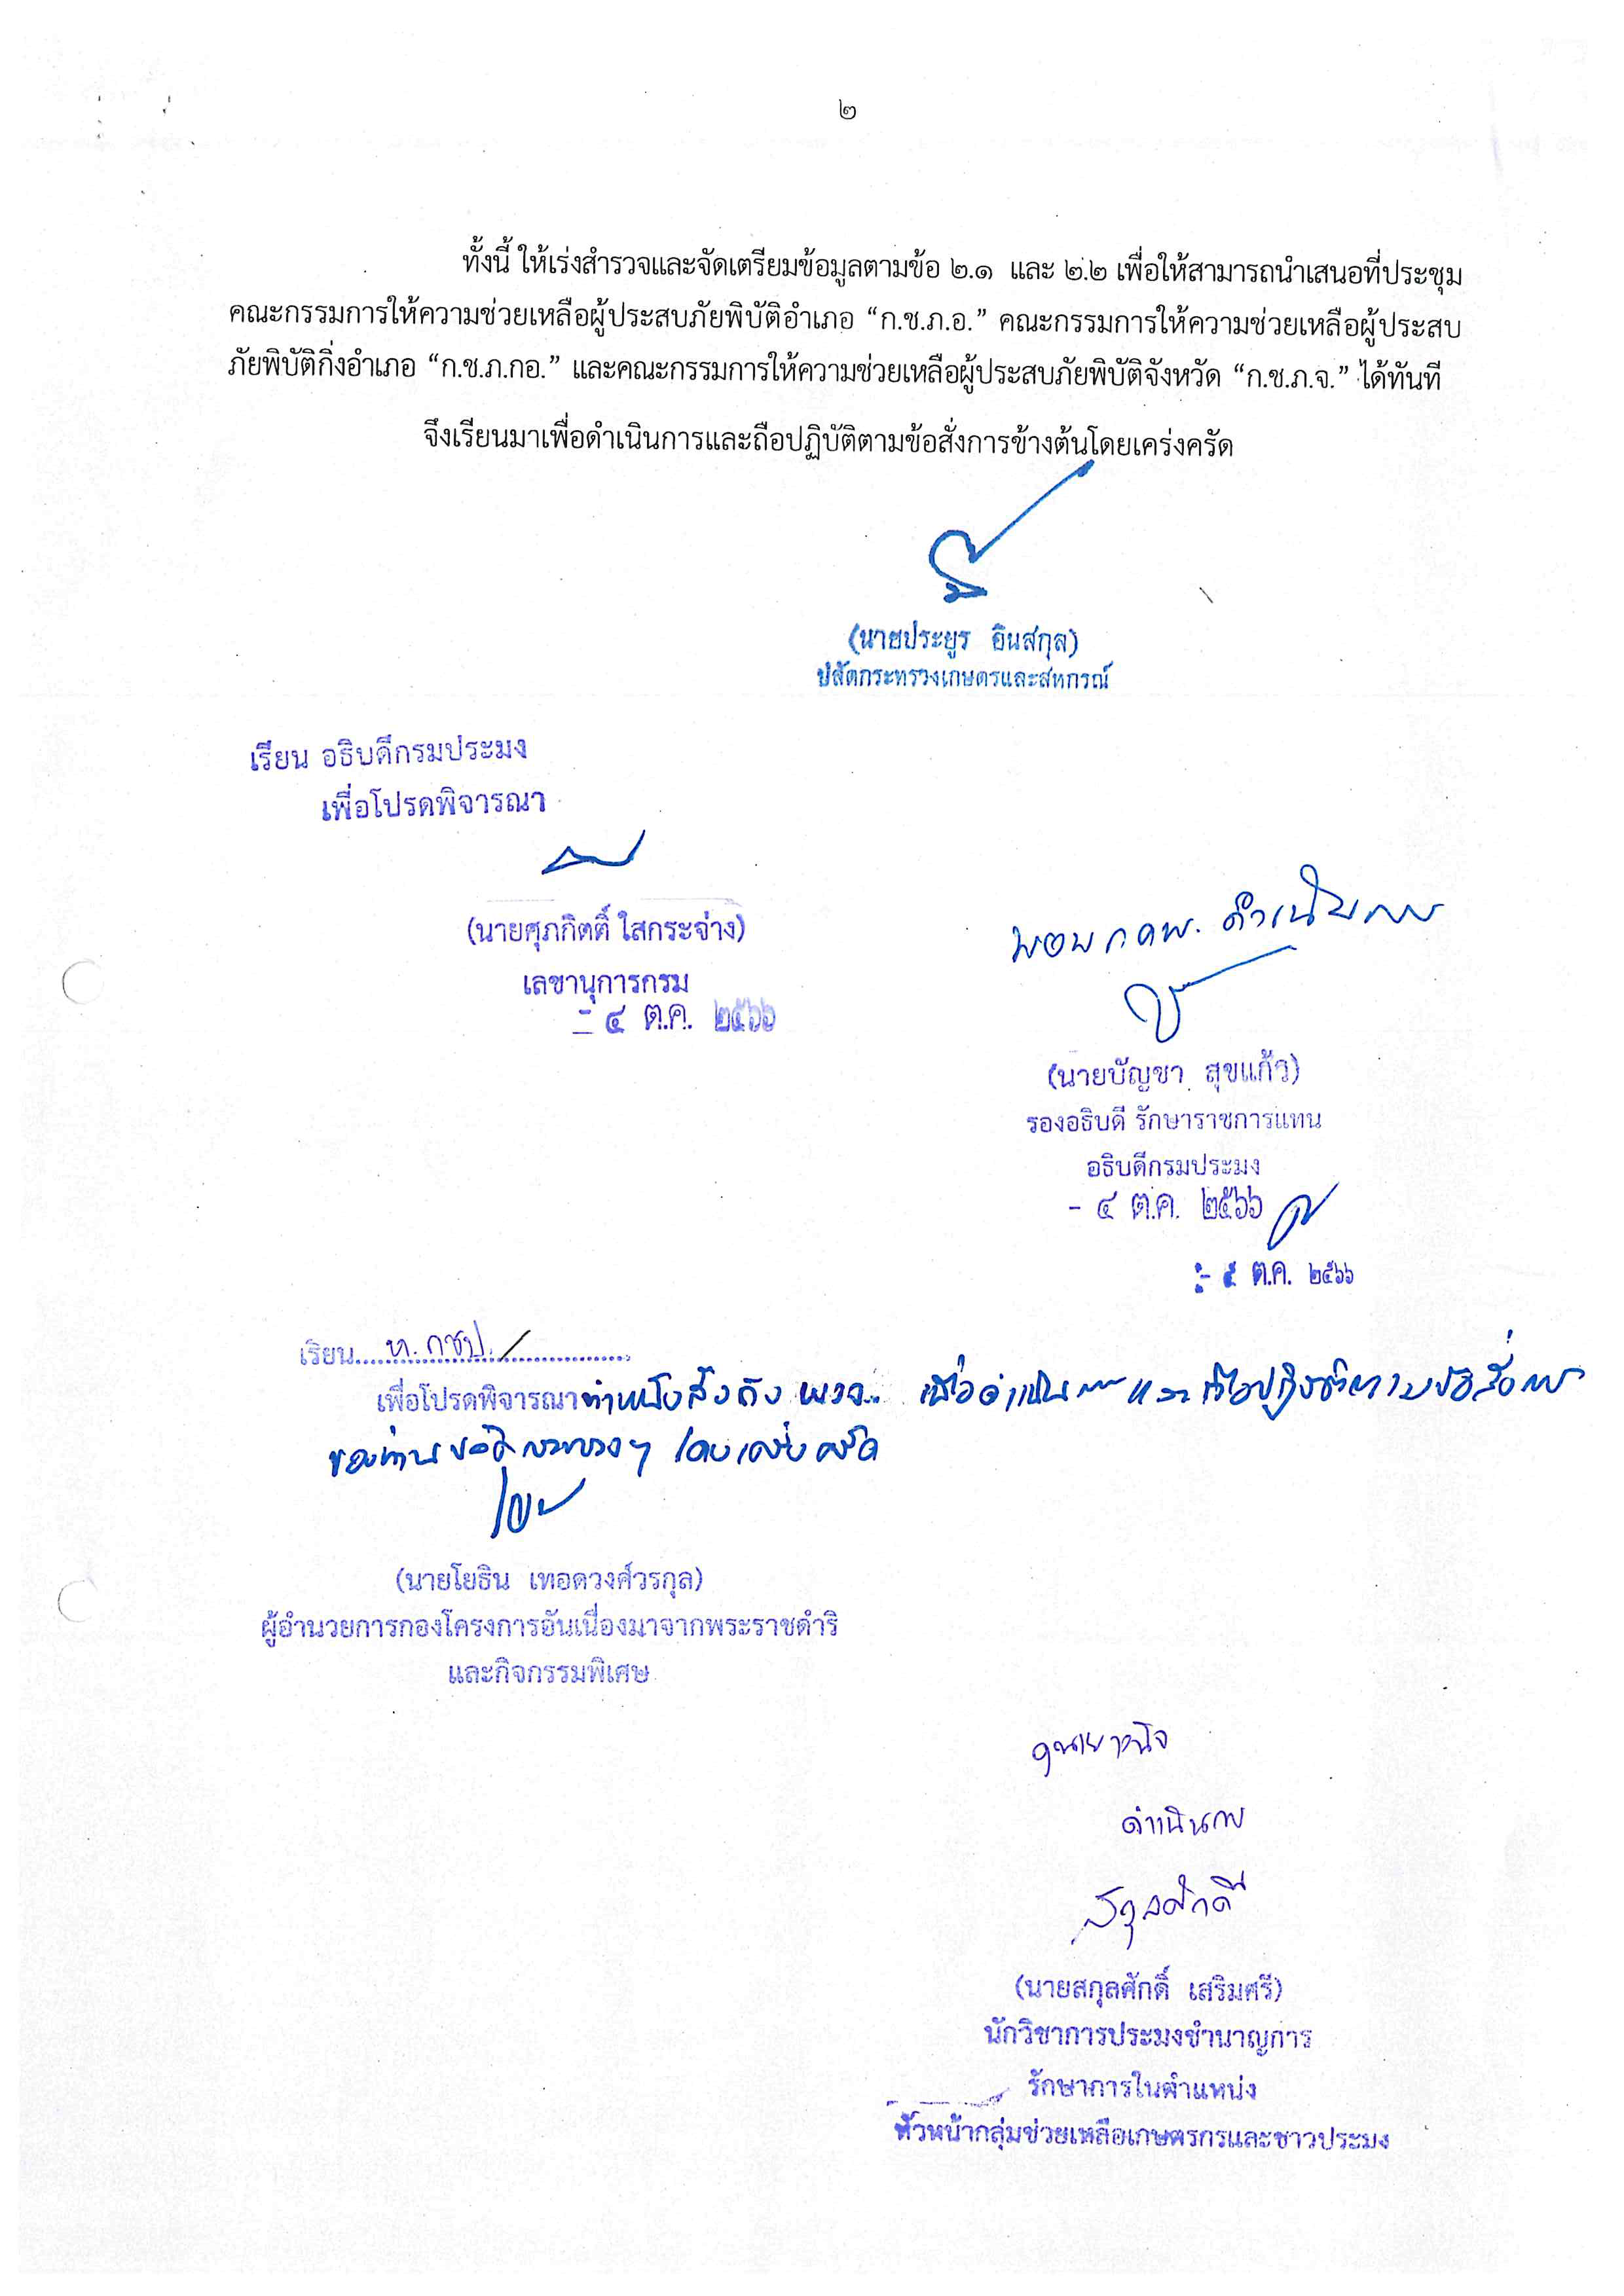 ๒
ทั้งนี้ ให้เร่งสำรวจและจัดเตรียมข้อมูลตามข้อ ๒.๑ และ ๒.๒ เพื่อให้สามารถนำเสนอที่ประชุม
คณะกรรมการให้ความช่วยเหลือผู้ประสบภัยพิบัติอำเภอ “ก.ช.ภ.อ.” คณะกรรมการให้ความช่วยเหลือผู้ประสบ
ภัยพิบัติกิ่งอำเภอ “ก.ช.ภ.กอ.” และคณะกรรมการให้ความช่วยเหลือผู้ประสบภัยพิบัติจังหวัด “ก.ช.ภ.จ.” ได้ทันที
จึงเรียนมาเพื่อดำเนินการและถือปฏิบัติตามข้อสั่งการข้างต้นโดยเคร่งครัด
(นายประยูร อินสกุล)
ปลัดกระทรวงเกษตรและสหกรณ์
เรียน อธิบดีกรมประมง
เพื่อโปรดพิจารณา
(นายศุภกิตติ์ ใสกระจ่าง)
เลขานุการกรม
- ๔ ต.ค. ๒๕๖๖
ดำเนินการ
(นายบัญชา สุขแก้ว)
รองอธิบดี รักษาราชการแทน
อธิบดีกรมประมง
- ๔ ต.ค. ๒๕๖๖
- ๕ ต.ค. ๒๕๖๖
เรียน....ห. กชป.
เพื่อโปรดพิจารณาทำหนังสือถึง เพื่อดำเนินการและถือปฏิบัติตามข้อสั่งการ
ของท่านปลัดกระทรวงฯ โดยเคร่งครัด
(นายโยธิน เทอดวงศ์วรกุล)
ผู้อำนวยการกองโครงการอันเนื่องมาจากพระราชดำริ
และกิจกรรมพิเศษ
ดำเนินการ
สกุลศักดิ์
(นายสกุลศักดิ์ เสริมศรี)
นักวิชาการประมงชำนาญการ
รักษาการในตำแหน่ง
หัวหน้ากลุ่มช่วยเหลือเกษตรกรและชาวประมง